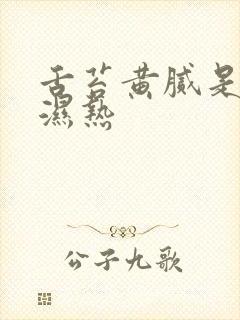 舌苔黄腻是
濕熱
公子九歌